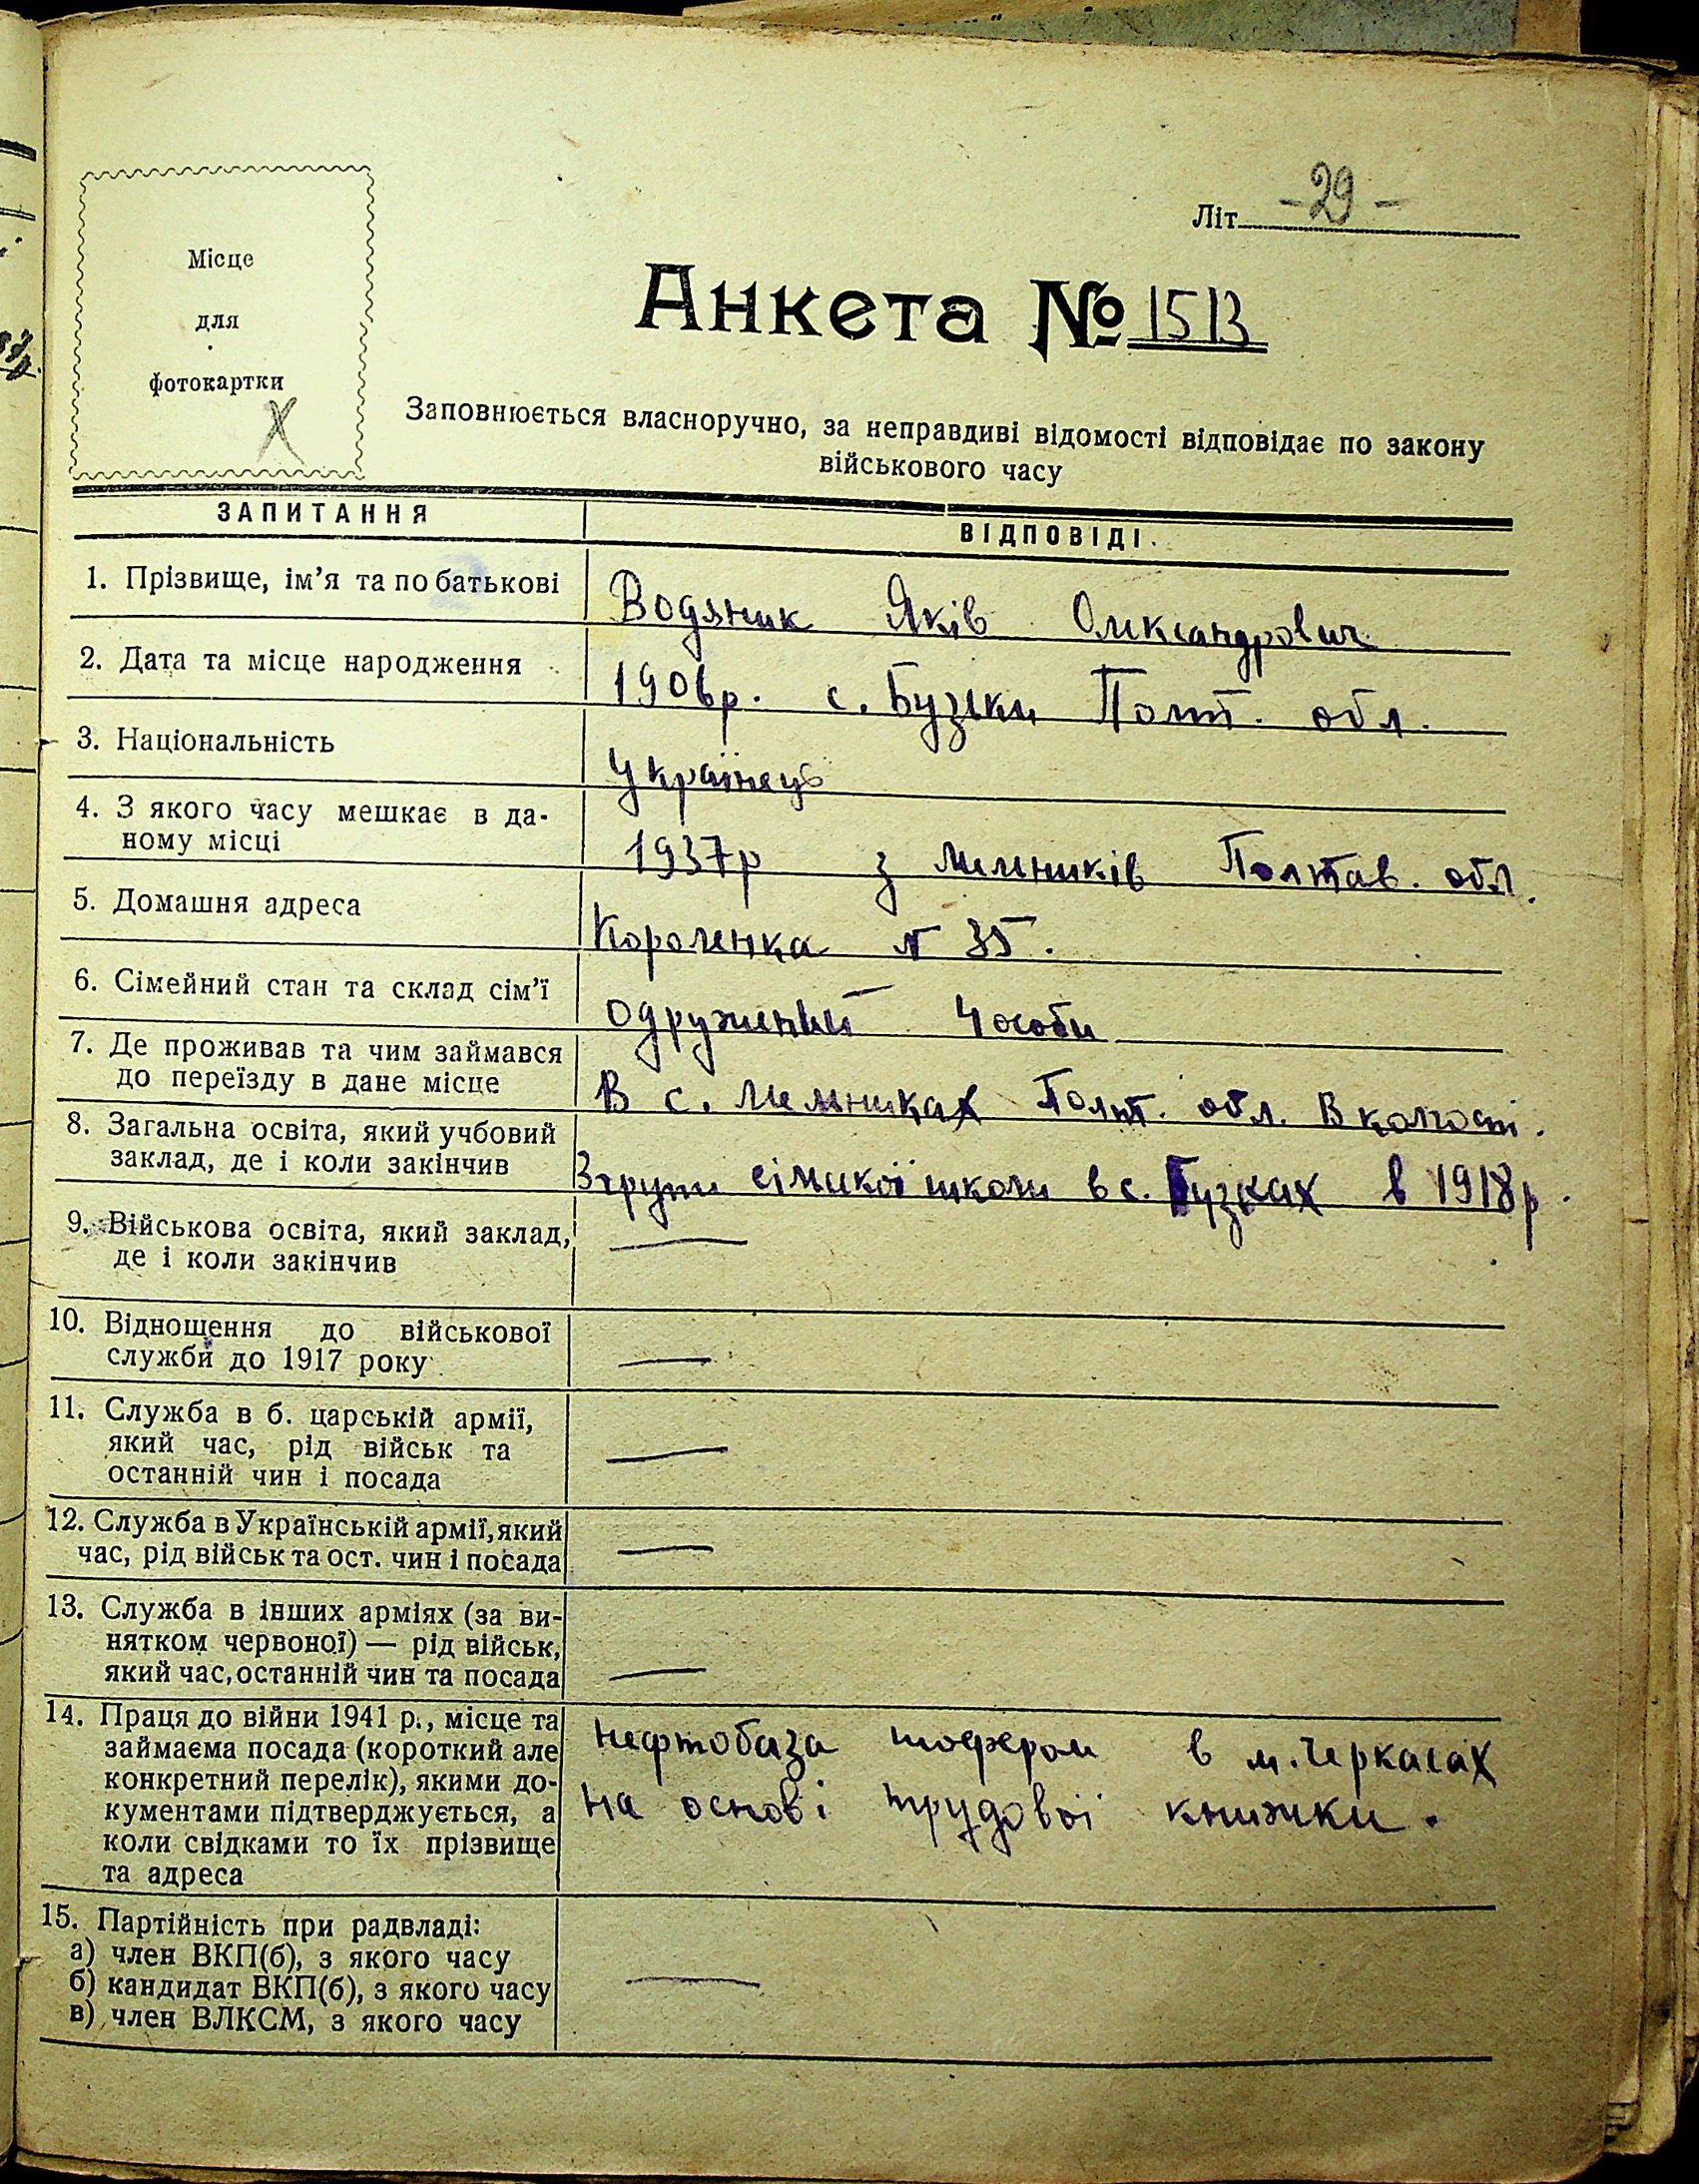 Літ. -29-
Місце
для
фотокартки
X
Анкета № 1513
Заповнюється власноручно, за неправдиві відомості відповідає по закону
військового часу
ЗАПИТАННЯ
ВІДПОВІДІ.
1. Прізвище, ім’я та по батькові
Водяник Яків Олександрович
2. Дата та місце народження
1906р. с. Бузьки Полт. обл.
3. Національність
Українець
4. З якого часу мешкає в да-
ному місці
1937р з Мельників Полтав. обл.
5. Домашня адреса
Короленка N 35.
6. Сімейний стан та склад сім’ї
одружений 4 особи
7. Де проживав та чим займався
до переїзду в дане місце
В с. Мельниках Полт. обл. В колгості.
8. Загальна освіта, який учбовий
заклад, де і коли закінчив
3 групи сільської школи в с. Бузках в 1918р.
9. Військова освіта, який заклад,
де і коли закінчив
—
10. Відношення до військової
служби до 1917 року
—
11. Служба в б. царській армії,
який час, рід військ та
останній чин і посада
—
12. Служба в Українській армії, який
час, рід військ та ост. чин і посада
—
13. Служба в інших арміях (за ви-
нятком червоної) — рід військ,
який час, останній чин та посада
—
14. Праця до війни 1941 р., місце та
займаєма посада (короткий але
конкретний перелік), якими до-
кументами підтверджується, а
коли свідками то їх прізвище
та адреса
нефтобаза шофером в м. Черкасах
на основі трудової книжки.
15. Партійність при радвладі:
а) член ВКП(б), з якого часу
б) кандидат ВКП(б), з якого часу
в) член ВЛКСМ, з якого часу
—